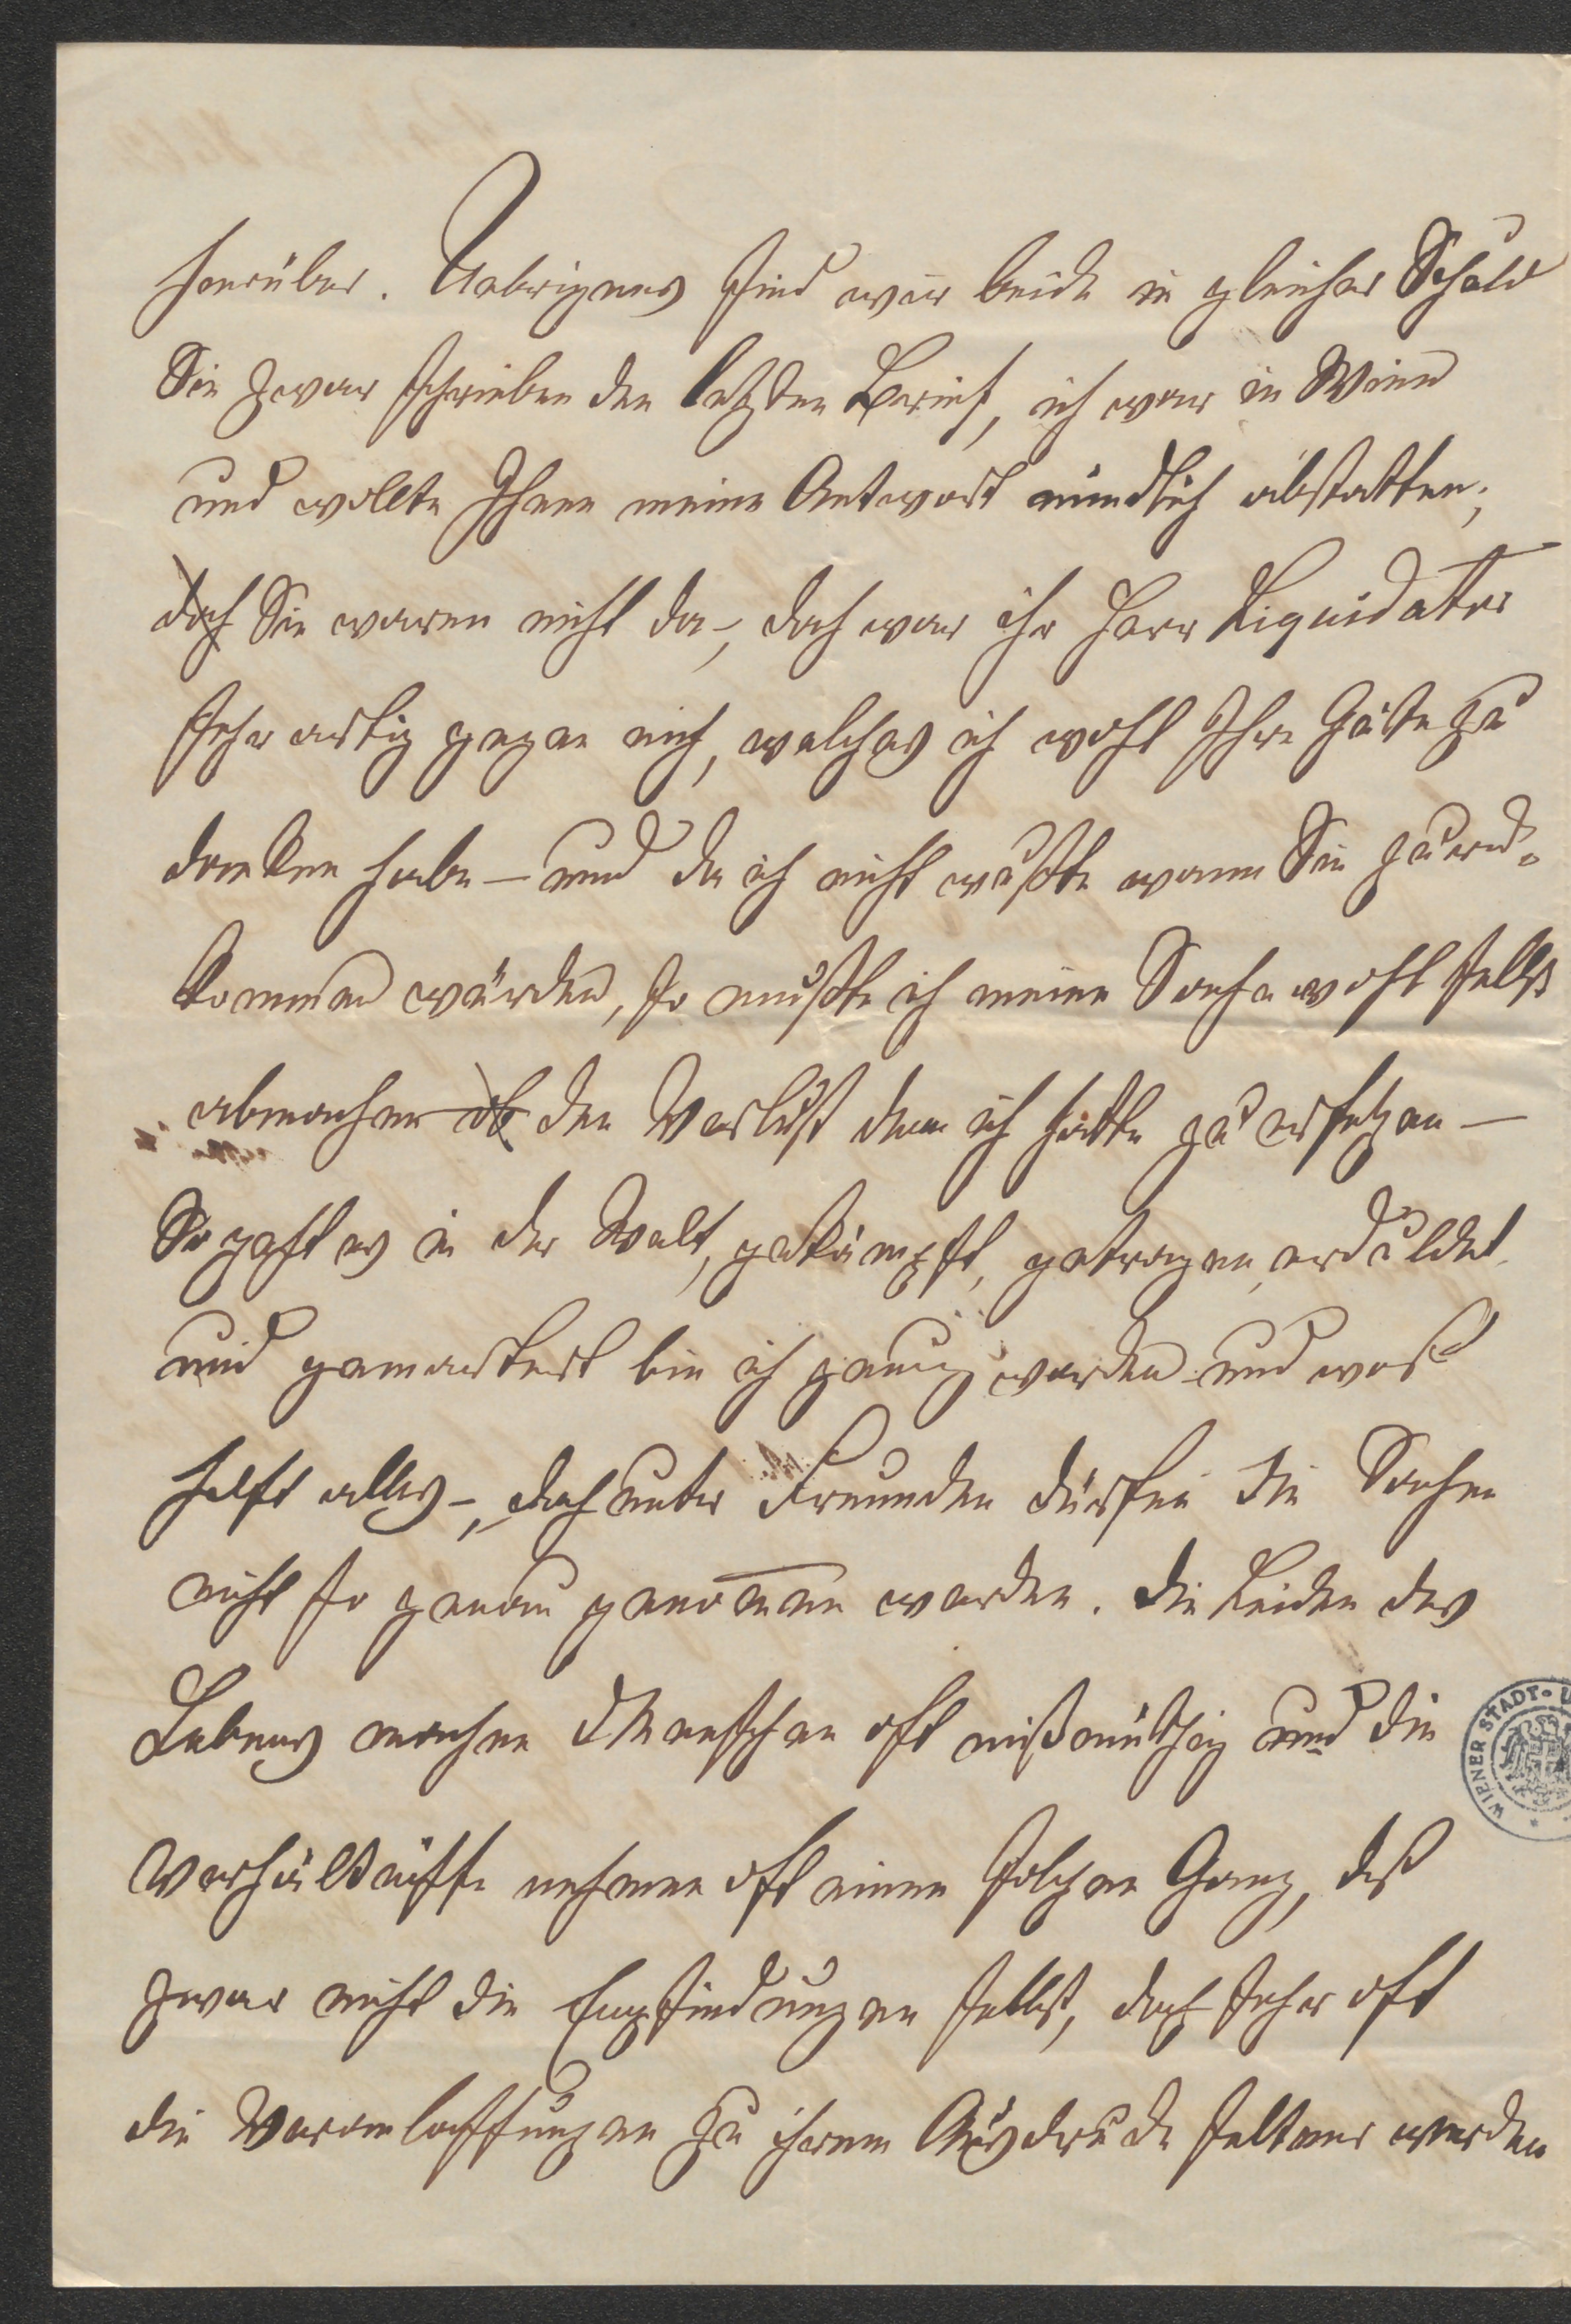 herüber. Uebrigens sind wir beide in gleicher Schuld
Sie zwar schrieben den letzten Brief, ich war in Wien
und wollte Ihnen meine Antwort mündlich abstatten;
doch Sie waren nicht da –, doch war ihr Herr Liquidator
sehr artig gegen mich, welches ich wohl Ihre Güte zu
danken habe – und da ich nicht wußte wann Sie zurück-
kommen würden, so mußte ich meine Sache wohl selbst
abmachen ob den Verlust den ich hatte zu ersetzen –
So geht es in der Welt, gekämpft, getragen, erduldet
und gemartert bin ich genug worden und was
helft alles –, doch unter Freunden dürfen die Sachen
nicht so genau genom̅en werden. Die Leiden des
Lebens machen Menschen oft mißmüthig und die
Verhältnisse nehmen oft einen solchen Gang, daß
zwar nicht die Empfindungen selbst, doch sehr oft
die Veranlassungen zu ihrem Ausdrucke seltener werden
WIENER STADT- U